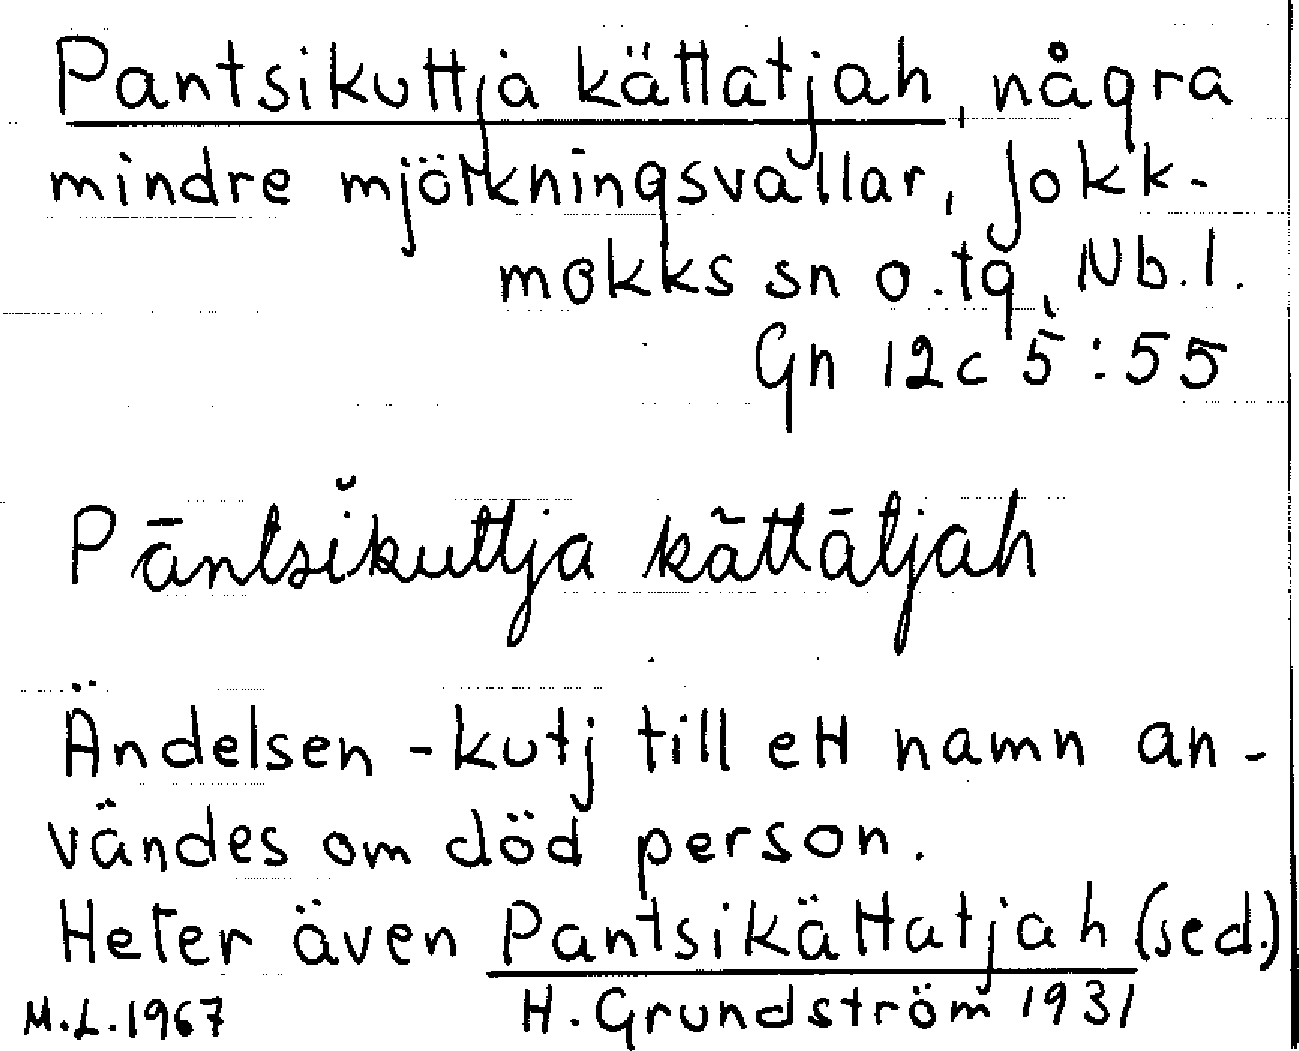 Pantsikuttja kättatjah, några
mindre mjölkningsvallar, Jokk-
mokks sn o. tg, Nb. l.
Gn 12c 5:55
Pāntsĭkuttja kā̆ttātjah
Ändelsen -kutj till ett namn an-
vändes om död person.
Heter även Pantsikättatjah (sed.)
M.L. 1967 H. Grundström 1931